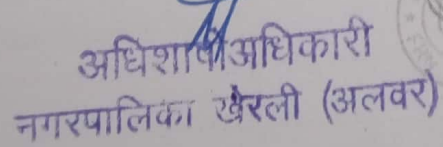 अधिशाषी अधिकारी
नगरपालिका खेरली (अलवर)